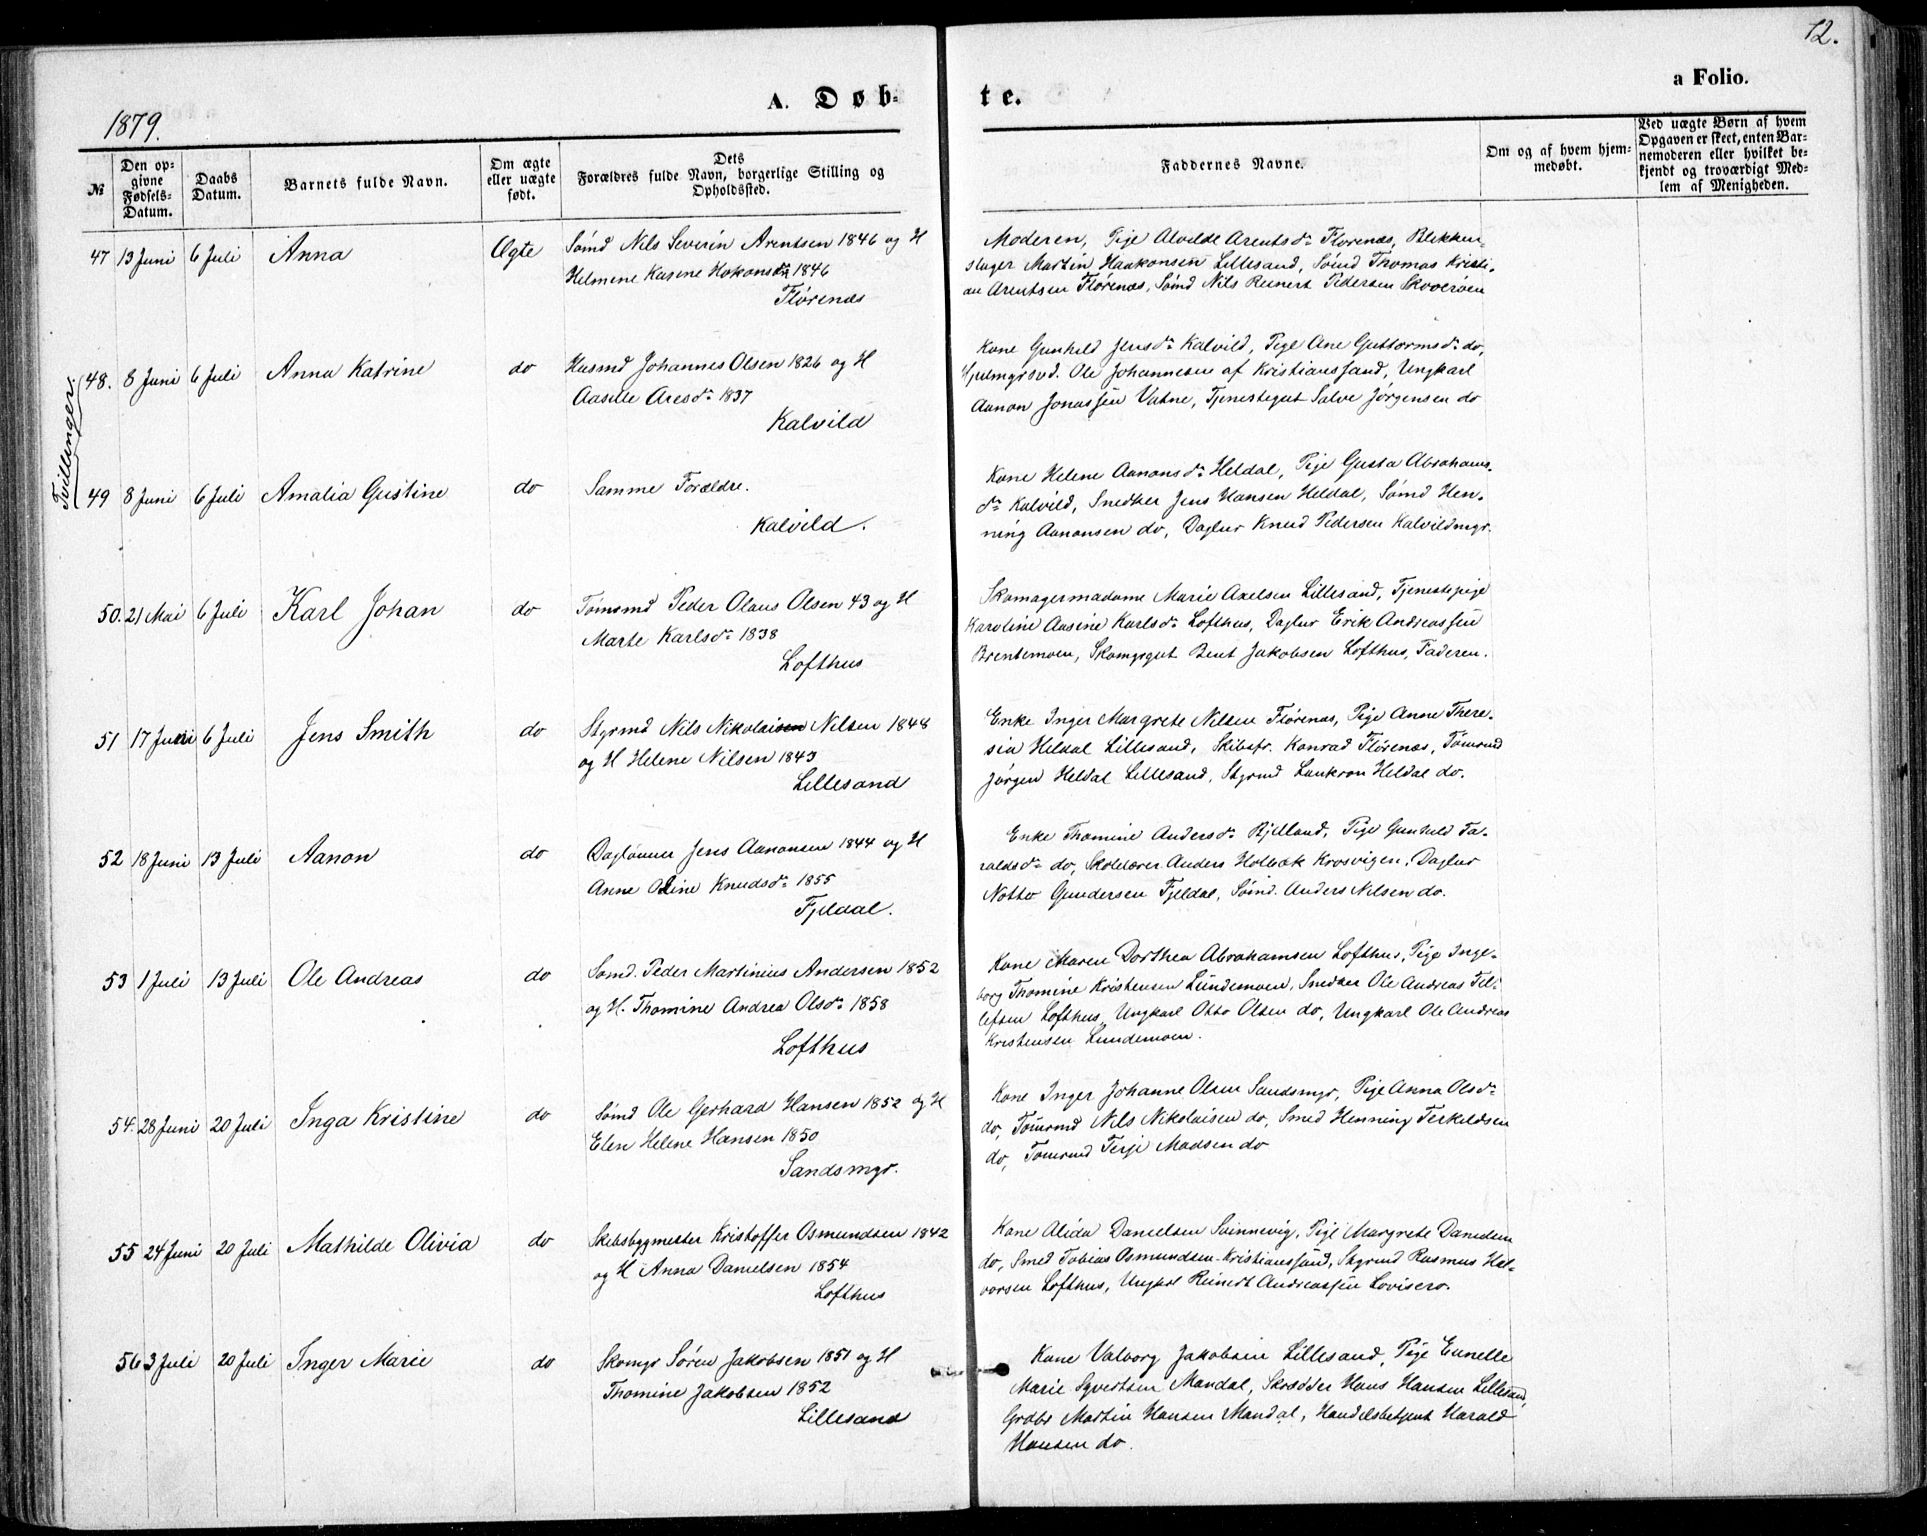 12.
a Folio.
A. Døb-
te.
1879.
No
Den op-
givne
Fødsels-
Datum.
Daabs
Datum.
Barnets fulde Navn.
Om ægte
eller uægte
født.
Dets
Forældres fulde Navn, borgerlige Stilling og
Opholdssted.
Faddernes Navne.
Om og af hvem hjem-
medøbt.
Ved uægte Børn af hvem
Opgaven er skeet, enten Bar-
nemoderen eller hvilket be-
kjendt og troværdigt Med-
lem af Menigheden.
47 13 Juni 6 Juli Anna Ægte
Sømd Nils Severin Arentsen 1846 og H
Helmene Kasine Hokonsdr 1846
Flørenæs
Moderen, Pige Alvilde Arentsdr Flørenæs, Blikken-
slager Martin Haakonsen Lillesand, Sømd Thomas Kristi-
an Arentsen Flørenæs, Sømd Nils Reinert Pedersen Skverøen
Tvillinger.
48. 8 Juni 6 Juli Anna Katrine do
Husmd Johannes Olsen 1826 og H
Aasille Aresdr 1837
Kalvild
Kone Gunhild Jensdr Kalvild, Pige Ane Guttormsdr do,
Hjulmgrsvd. Ole Johannesen af Kristianssand, Ungkarl
Aanon Jonassen Vatne, Tjenestegut Salve Jørgensen do
49 8 Juni 6 Juli Amalia Gustine do
Samme Forældre.
Kalvild.
Kone Helene Aanonsdr Heldal, Pige Gusta Abrahams-
dr Kalvild, Snedker Jens Hansen Heldal, Sømd Hen-
ning Aanonsen do, Daglur Knud Pedersen Kalvildmyr.
50. 21 Mai 6 Juli Karl Johan do
Tømsmd Peder Olaus Olsen 43 og H
Marte Karlsdr 1838
Lofthus
Skomagermadame Marie Axelsen Lillesand, Tjenestepige
Karoline Aasine Karlsdr Lofthus, Daglur Erik Andreassen
Brentemoen, Skomgrgut Bent Jakobsen Lofthus, Faderen.
51 17 Juni 6 Juli Jens Smith do
Styrmd Nils Nikolaisen Nilsen 1848
og H Helene Nilsen 1843
Lillesand
Enke Inger Margrete Nilsen Flørenæs, Pige Anne There-
sia Heldal Lillesand, Skibsfr. Konrad Flørenæs, Tømrmd
Jørgen Heldal Lillesand, Styrmd Laukron Heldal do.
52 18 Juni 13 Juli Aanon do
Daglønner Jens Aanonsen 1844 og H
Anne Oline Knudsdr 1855
Fjeldal.
Enke Thomine Andersdr Bjelland, Pige Gunhild Ta-
raldsdr do, Skolelærer Anders Holbæk Krosvigen, Daglur
Notto Gundersen Fjeldal, Sømd. Anders Nilsen do.
53 1 Juli 13 Juli Ole Andreas do
Sømd. Peder Martinius Andersen 1852
og H. Thomine Andrea Olsdr 1858
Lofthus
Kone Maren Dorthea Abrahamsen Lofthus, Pige Inge-
borg Thomine Kristensen Lundemoen, Snedker Ole Andreas Tel-
lefsen Lofthus, Ungkarl Otto Olsen do, Ungkarl Ole Andreas
Kristensen Lundemoen.
54. 28 Juni 20 Juli Inga Kristine do
Sømd Ole Gerhard Hansen 1852 og H
Elen Helene Hansen 1850
Sandsmyr.
Kone Inger Johanne Olsen Sandsmyr, Pige Anna Olsdr
do, Tømrmd Nils Nikolaisen do, Smed Henning Terkeldsen
do, Tømrmd Terje Madsen do
55 24 Juni 20 Juli Mathilde Olivia do
Skibsbygmester Kristoffer Osmundsen 1842
og H Anna Danielsen 1854
Lofthus
Kone Alida Danielsen Svinnevig, Pige Margrete Danielsen
do, Smed Tobias Osmundsen Kristianssand, Styrmd Rasmus Hal-
vorsen Lofthus, Ungkarl Reinert Andreassen Lovisero.
56 3 Juli 20 Juli Inger Marie do
Skomgr Søren Jakobsen 1851 og H
Thomine Jakobsen 1852
Lillesand
Kone Valborg Jakobsen Lillesand, Pige Eunelle
Marie Syvertsen Mandal, Skrædder Hans Hansen Lillesand,
Grdbs Martin Hansen Mandal, Handelsbetjent Harald
Hansen do.